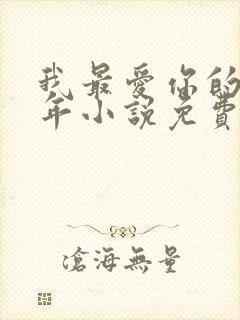 我最愛你的
年小說免費
滄海無量